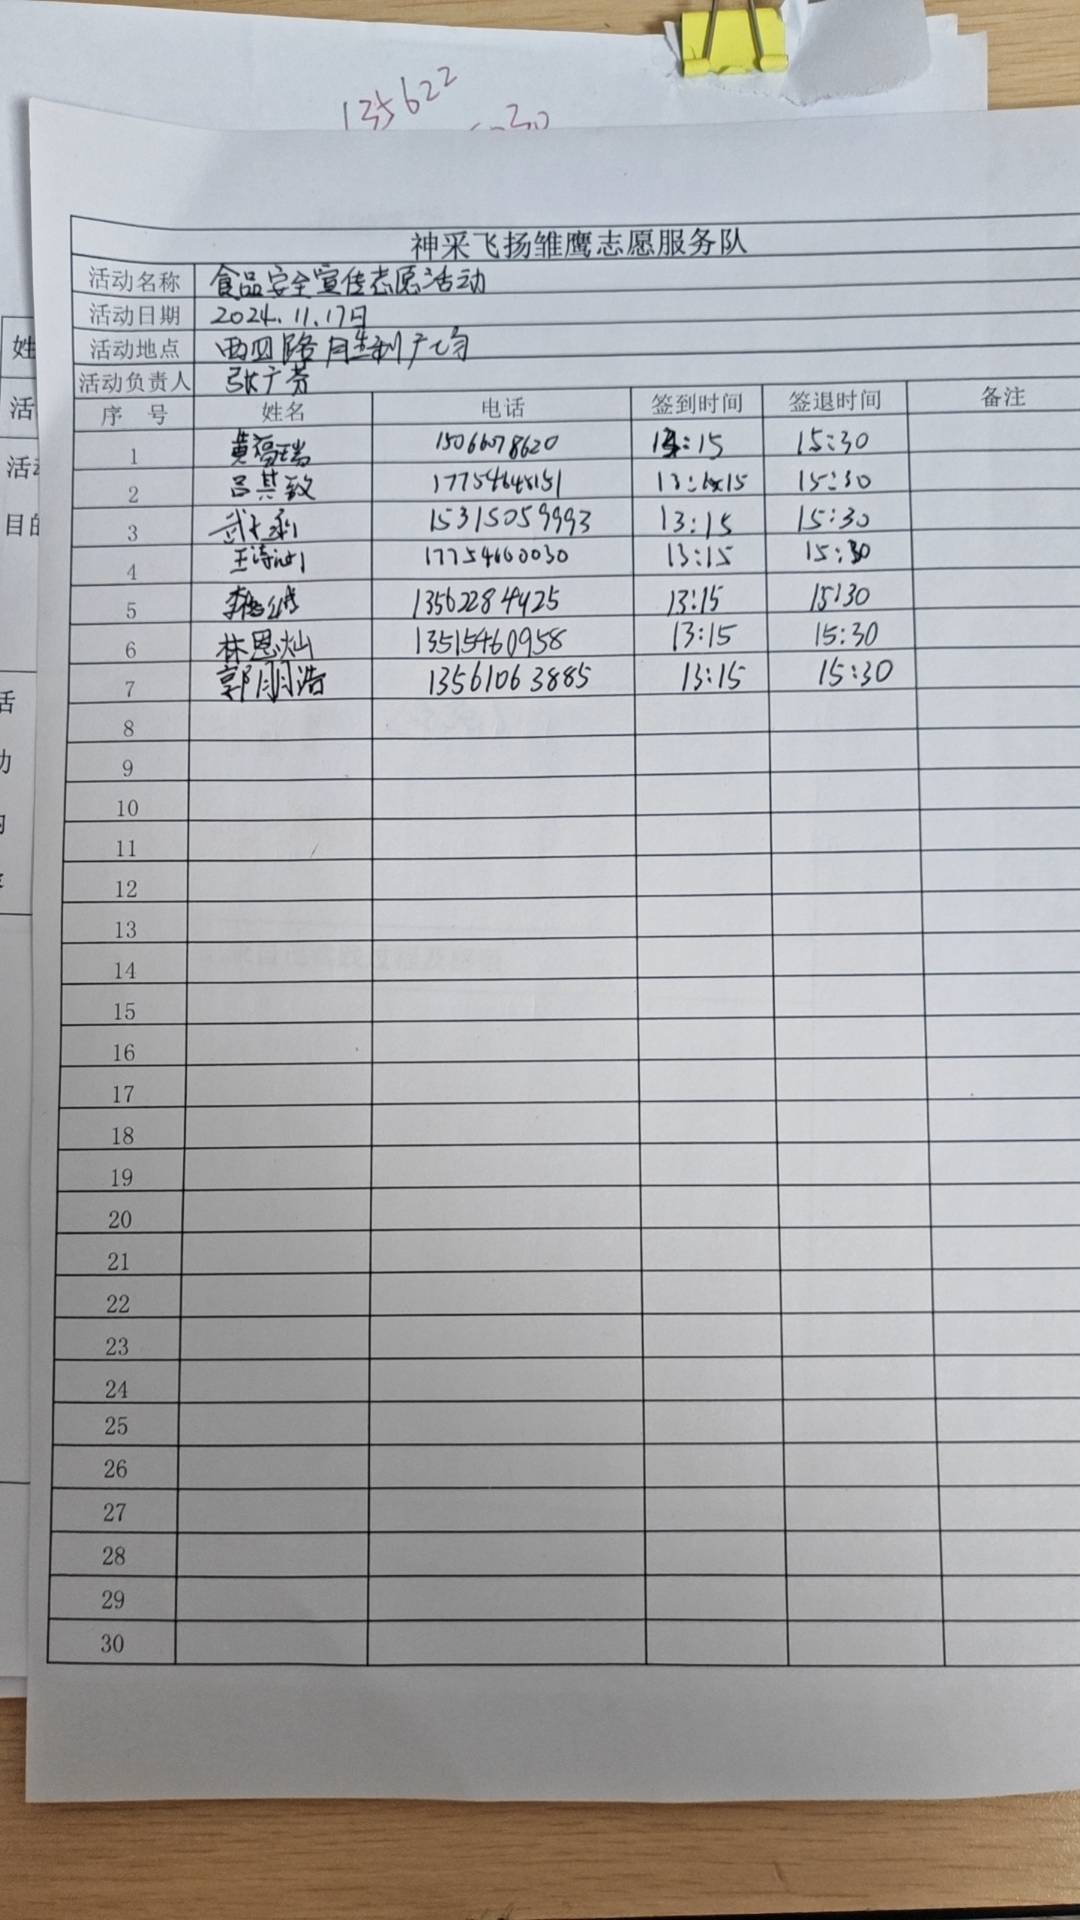 135622
30
神采飞扬雏鹰志愿服务队
活动名称 食品安全宣传志愿活动
活动日期 2024.11.17日
活动地点 西四路胜利广场
活动负责人 张广芳
序 号 姓名 电话 签到时间 签退时间 备注
1 黄福瑞 15066078620 13:15 15:30
2 吕其致 13:15 15:30
3 武 15315059993 13:15 15:30
4 王诗 17754660030 13:15 15:30
5 李 13562284425 13:15 15:30
6 林恩灿 13515460958 13:15 15:30
7 郭明浩 13561063885 13:15 15:30
8
9
10
11
12
13
14
15
16
17
18
19
20
21
22
23
24
25
26
27
28
29
30
姓
活
活动
目的
活
动